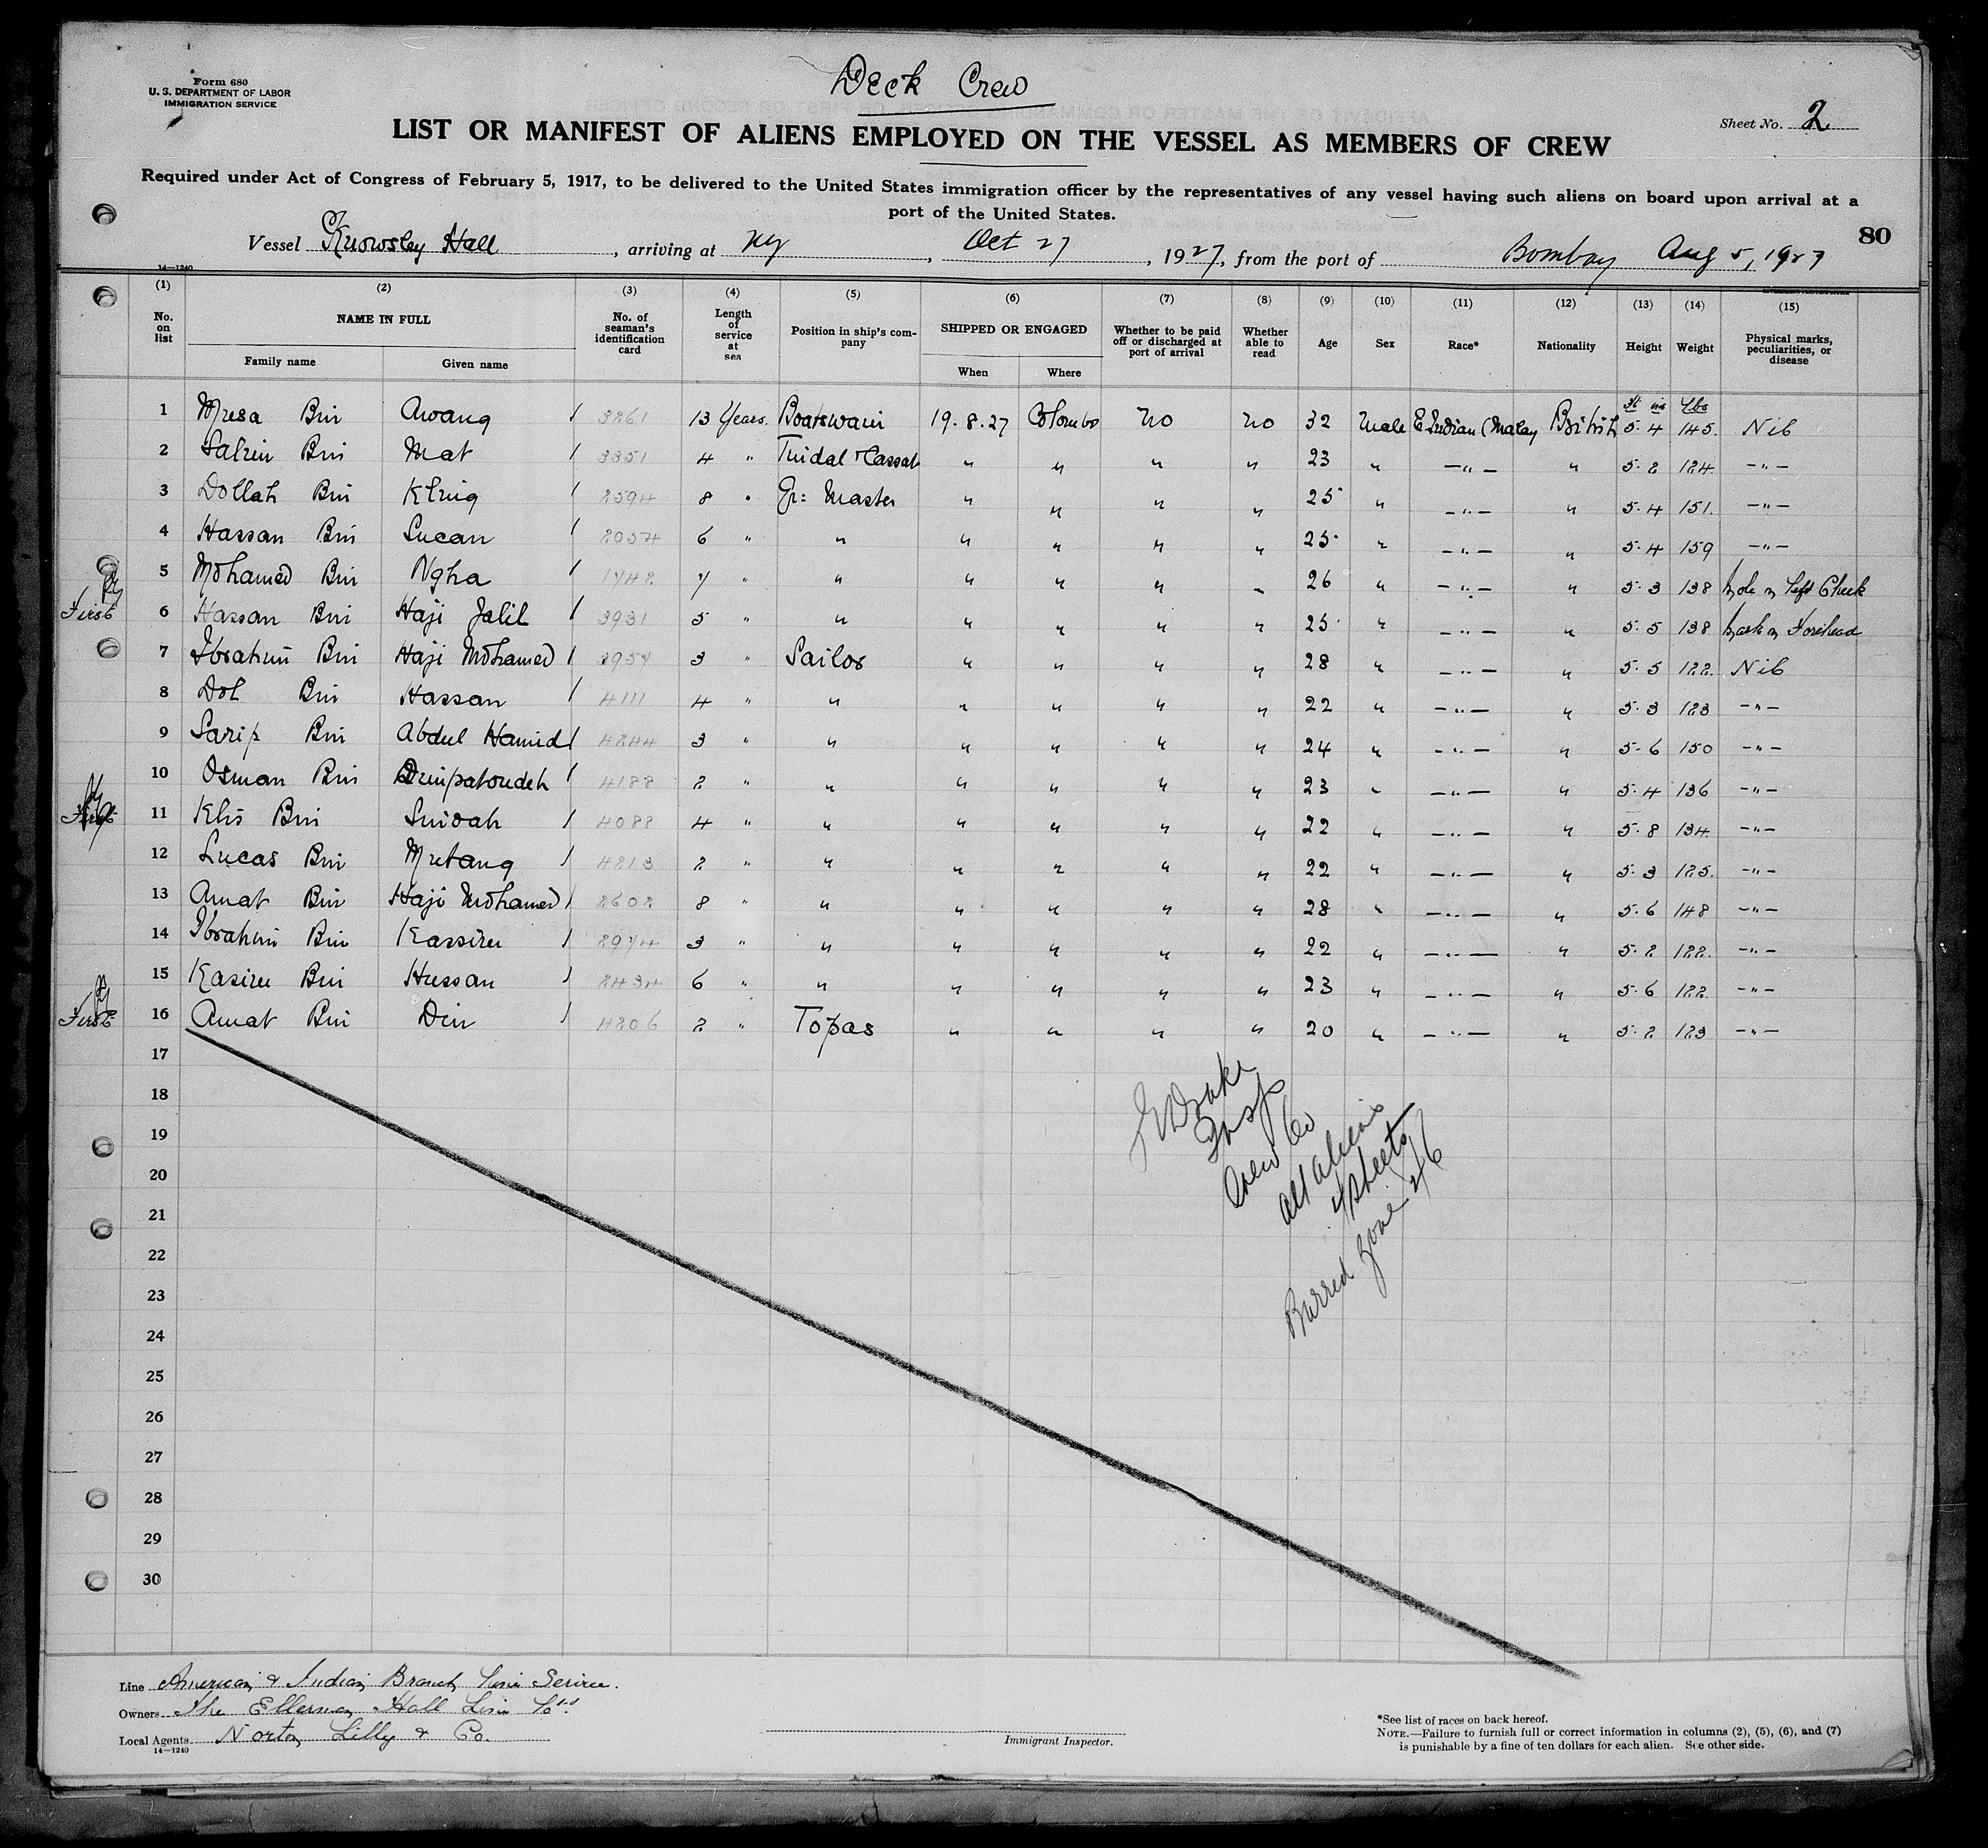 Form 680
U. S. DEPARTMENT OF LABOR
IMMIGRATION SERVICE
Deck Crew
Sheet No. 2
LIST OR MANIFEST OF ALIENS EMPLOYED ON THE VESSEL AS MEMBERS OF CREW
Required under Act of Congress of February 5, 1917, to be delivered to the United States immigration officer by the representatives of any vessel having such aliens on board upon arrival at a
port of the United States.
80
Vessel Knowsley Hall, arriving at NY, Oct 27, 1927, from the port of Bombay Aug 5, 1927
14—1240
(1) (2) (3) (4) (5) (6) (7) (8) (9) (10) (11) (12) (13) (14) (15)
No. on list
NAME IN FULL
Family name Given name
No. of seaman's identification card
Length of service at sea
Position in ship's company
SHIPPED OR ENGAGED
When Where
Whether to be paid off or discharged at port of arrival
Whether able to read
Age
Sex
Race*
Nationality
Height
Weight
Physical marks, peculiarities, or disease
ft ins lbs
1 Musa Bin Awang 3861 13 Years. Boatswain 19.8.27 Colombo No No 32 Male E.Indian (Malay British 5.4 145. Nil
2 Bin Mat 3351 4 " Tindal & Cassab " " " " 23 " —"— " 5.2 124 —"—
3 Dollah Bin Kling 2594 8 " Qr: Master " " " " 25 " —"— " 5.4 151. —"—
4 Hassan Bin Sucan 2054 6 " " " " " " 25 " —"— " 5.4 159 —"—
5 Mohamed Bin Ngha 1742 7 " " " " " " 26 " —"— " 5.3 138 Mole on Left Cheek
First 6 Hassan Bin Haji Jalil 3931 5 " " " " " " 25 " —"— " 5.5 138 Mark on Forehead
7 Ibrahim Bin Haji Mohamed 3957 3 " Sailor " " " " 28 " —"— " 5.5 122. Nil
8 Dol Bin Hassan 4111 4 " " " " " " 22 " —"— " 5.3 123 —"—
9 Sarip Bin Abdul Hamid 4244 3 " " " " " " 24 " —"— " 5.6 150 —"—
10 Osman Bin 4188 2 " " " " " " 23 " —"— " 5.4 136 —"—
First 11 Bin 4088 4 " " " " " " 22 " —"— " 5.8 134 —"—
12 Lucas Bin Mutang 4213 2 " " " " " " 22 " —"— " 5.3 125. —"—
13 Amat Bin Haji Mohamed 2602 8 " " " " " " 28 " —"— " 5.6 148 —"—
14 Ibrahim Bin Kassim 2974 3 " " " " " " 22 " —"— " 5.2 122. —"—
15 Kasim Bin Hussan 2434 6 " " " " " " 23 " —"— " 5.6 122 —"—
First 16 Amat Bin Din 4206 2 " Topas " " " " 20 " —"— " 5.2 123 —"—
17
18
19
20
21
22
23
24
25
26
27
28
29
30
Drake
Insp
Crew 60
All aliens
4 sheets
Barred zone 46
Line American & Indian Branch Line Service.
Owners The Ellerman Hall Line Co.
Local Agents Norton Lilly & Co.
14—1240
Immigrant Inspector.
*See list of races on back hereof.
NOTE.—Failure to furnish full or correct information in columns (2), (5), (6), and (7)
is punishable by a fine of ten dollars for each alien. See other side.